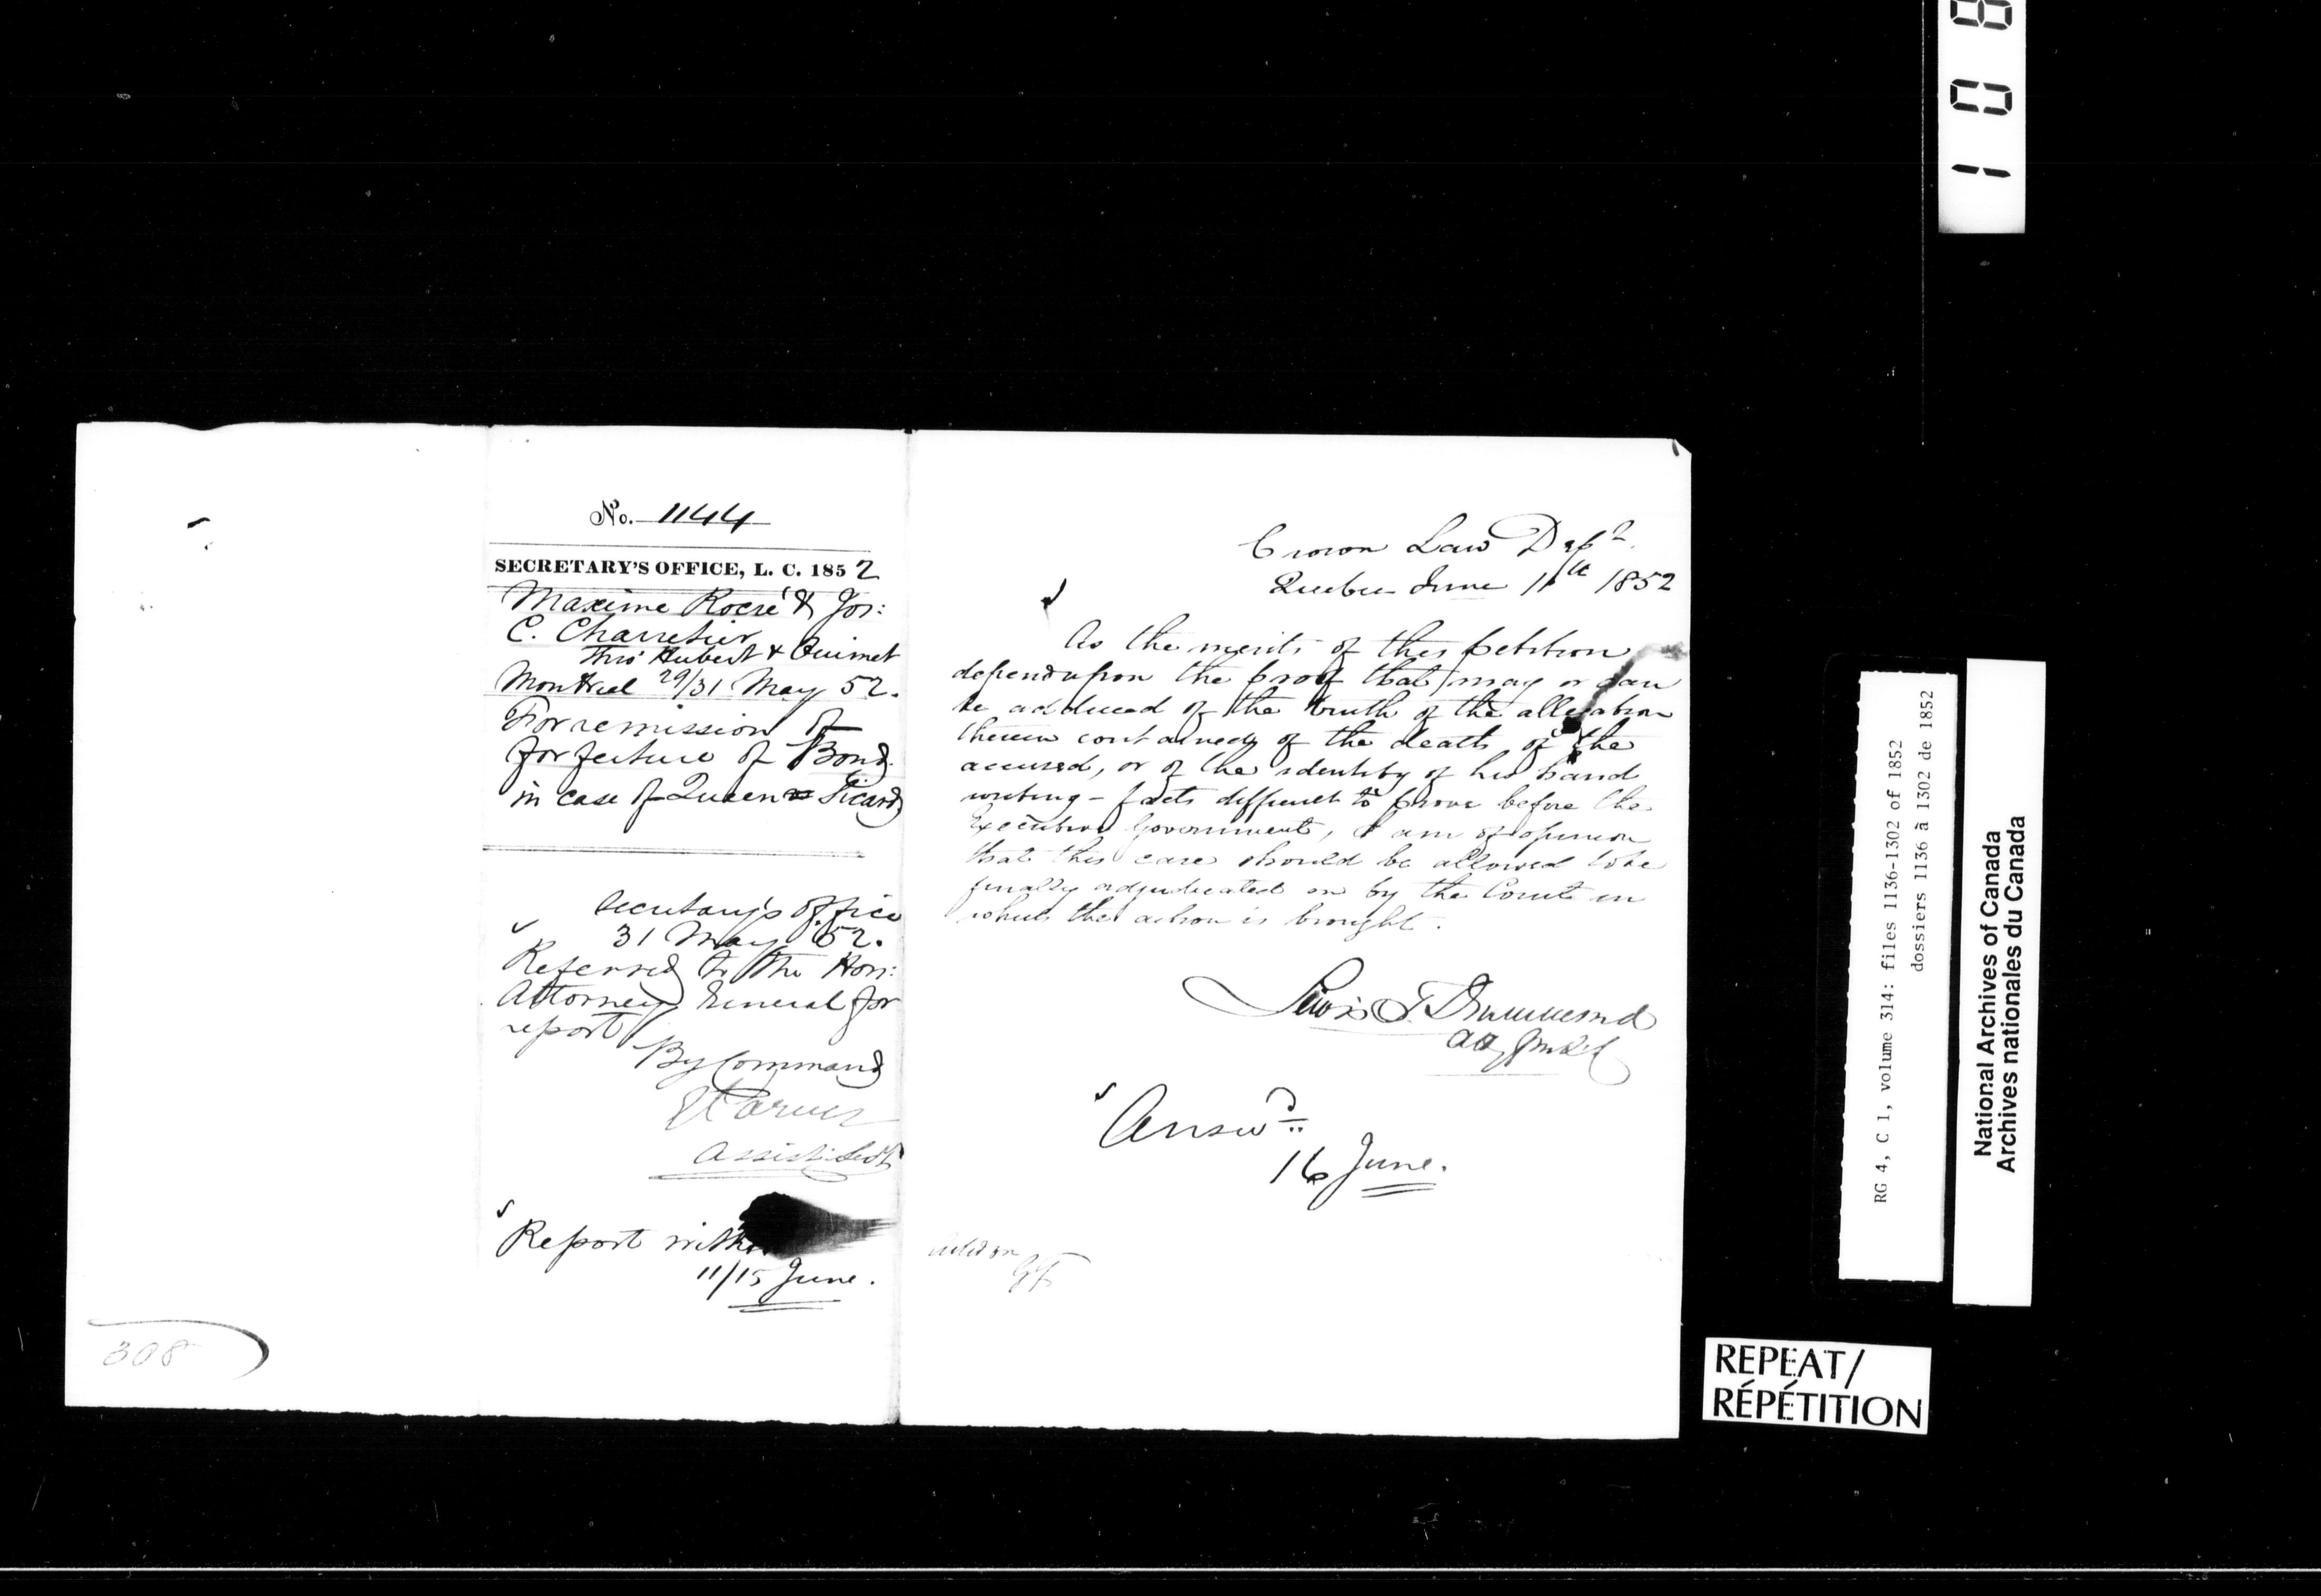 No. 1144
SECRETARY'S OFFICE, L. C. 1852
Maxime Rocré & Jos:
C. Charretier
Thro' Hubert & Ouimet
Montreal 29/31 May 52.
For remission of
forfeiture of Bond
in case of Queen Sicard
Secretary's Office
31 May 52.
Referred to the Hon:
Attorney General for
report
By Command
Assist: Secy
Report within
11/15 June.
308
Crown Law Dept
Quebec June 11th 1852
As the merits of this petition
depend upon the proof that may or can
be adduced of the truth of the allegation
therein contained of the death of the
accused, or of the identity of his hand
writing - facts difficult to prove before the
Executive Government, I am of opinion
that this case should be allowed to be
finally adjudicated on by the Court in
which the action is brought.
Lewis T. Drummond
Atty Genl
Answd
16 June.
1 0 8
RG 4, C 1, volume 314: files 1136-1302 of 1852
dossiers 1136 à 1302 de 1852
National Archives of Canada
Archives nationales du Canada
REPEAT/
RÉPÉTITION